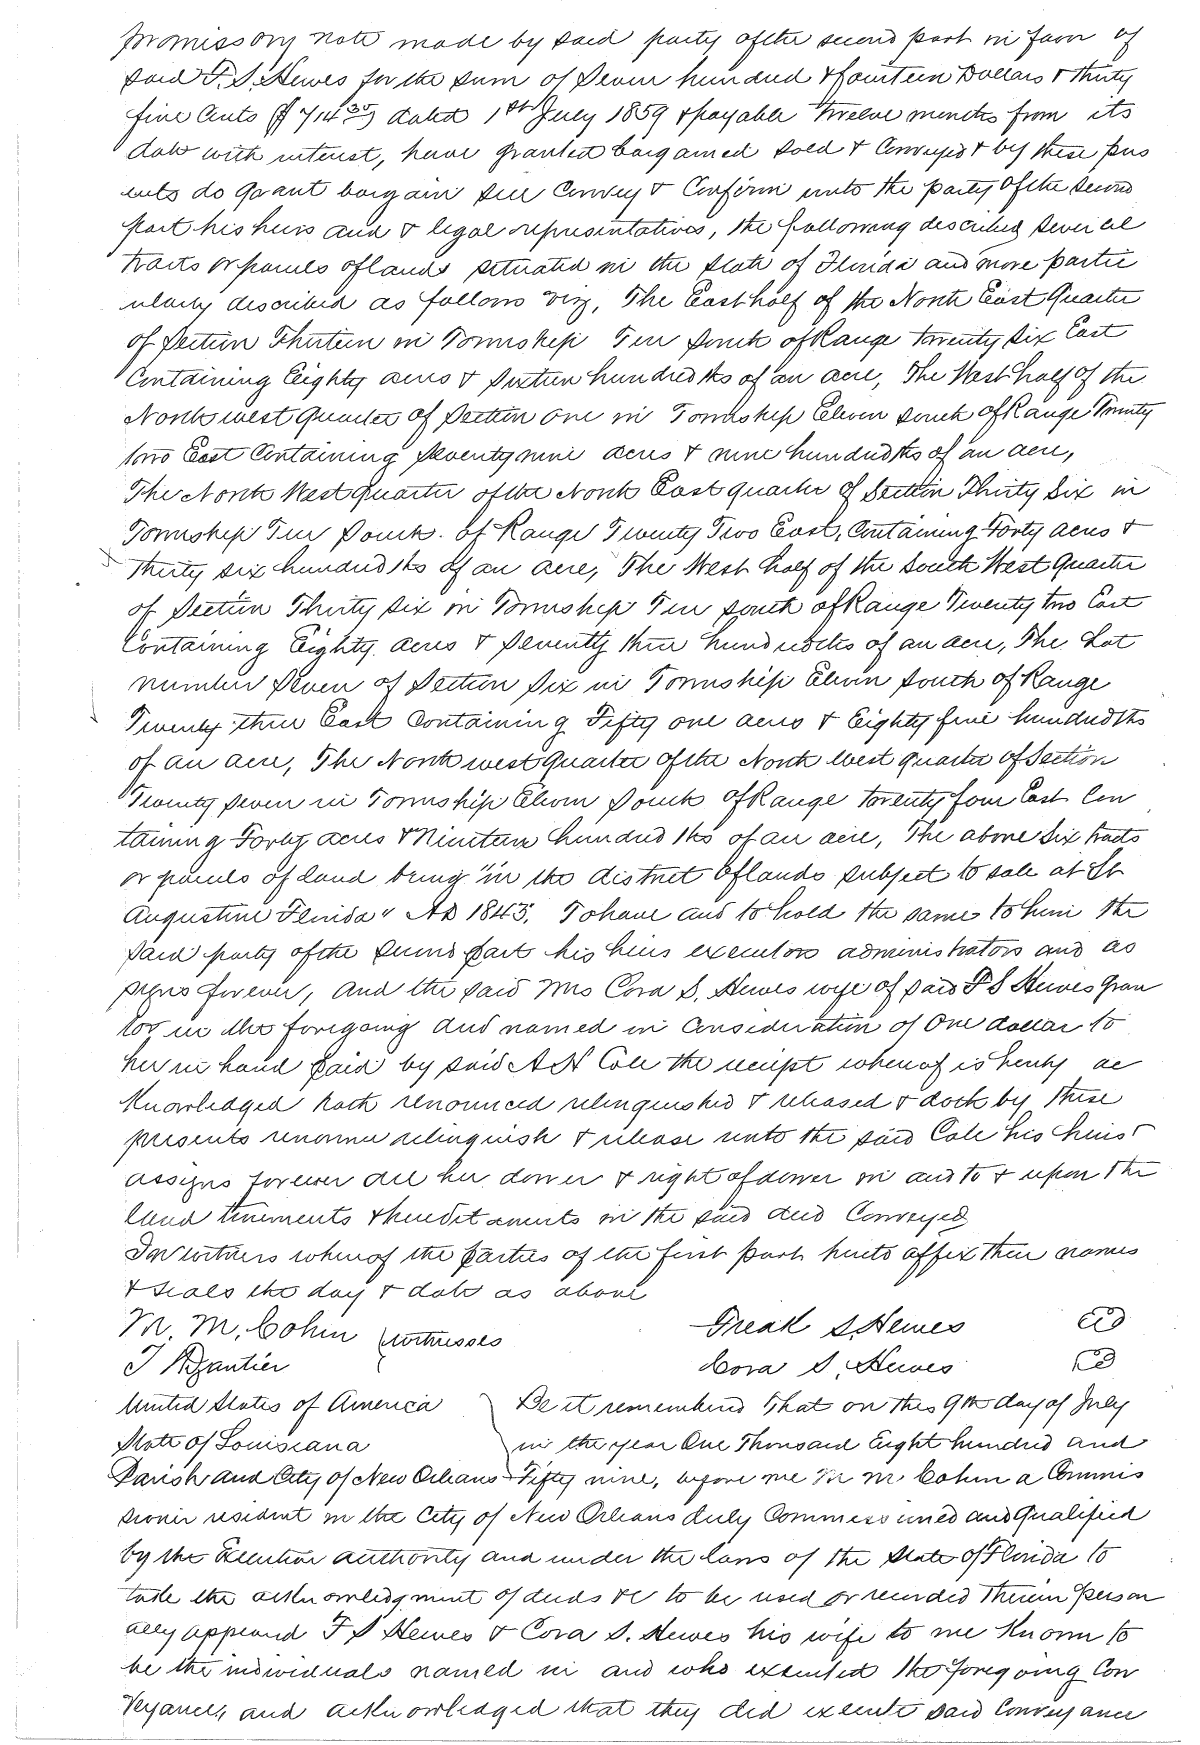 promissory note made by said party of the second part in favor of
said F. S. Hewes for the sum of Seven hundred & fourteen Dollars & thirty
five Cents ($714 35) dated 1st July 1859 & payable twelve months from its
date with interest, have granted bargained sold & Conveyed & by these pres
ents do grant bargain sell Convey & Confirm unto the party of the second
part his heirs and & legal representatives, the following described several
tracts or parcels of lands situated in the State of Florida and more partic
ularly described as follows viz, The East half of the North East Quarter
of Section Thirteen in Township Ten South of Range twenty Six East
Containing Eighty acres & Sixteen hundredths of an acre, The West half of the
North west quarter of Section one in Township Eleven south of Range Twenty
two East Containing Seventy nine acres & nine hundredths of an acre,
The North West quarter of the North East quarter of Section Thirty Six in
Township Ten South of Range Twenty Two East, Containing Forty acres &
thirty six hundredths of an acre, The West half of the South West Quarter
of Section Thirty Six in Township Ten south of Range Twenty two East
Containing Eighty acres & Seventy three hundredths of an acre, The Lot
number Seven of Section Six in Township Eleven South of Range
Twenty three East Containing Fifty one acres & Eighty five hundredths
of an acre, The North west quarter of the North West quarter of Section
Twenty Seven in Township Eleven South of Range twenty four East Con
taining Forty acres & Nineteen hundredths of an acre, The above Six tracts
or parcels of land being "in the district of lands subject to sale at St
Augustine Florida" AD 1843. To have and to hold the same to him the
said party of the second part his heirs executors administrators and as
signs forever, And the said Mrs Cora S. Hewes wife of said F S Hewes Gran
tor in the foregoing deed named in Consideration of One dollar to
her in hand paid by said A H Cole the receipt whereof is hereby ac
knowledged hath renounced relinquished & released & doth by these
presents renounce relinquish & release unto the said Cole his heirs &
assigns forever all her dower & right of dower in and to & upon the
land tenements & hereditaments in the said deed Conveyed
In witness whereof the parties of the first part hereto affix their names
& seals the day & date as above
M. M. Cohen } witnesses Fredk S. Hewes
Cora S. Hewes
United States of America } Be it remembered that on this 9th day of July
State of Louisiana in the year One Thousand Eight hundred and
Parish and City of New Orleans Fifty nine, before me M M Cohen a Commis
sioner resident in the City of New Orleans duly Commissioned and Qualified
by the Executive authority and under the laws of the State of Florida to
take the acknowledgment of deeds &c to be used or recorded therein person
ally appeared F S Hewes & Cora S. Hewes his wife to me Known to
be the individuals named in and who executed the foregoing Con
veyance, and acknowledged that they did execute said Conveyance